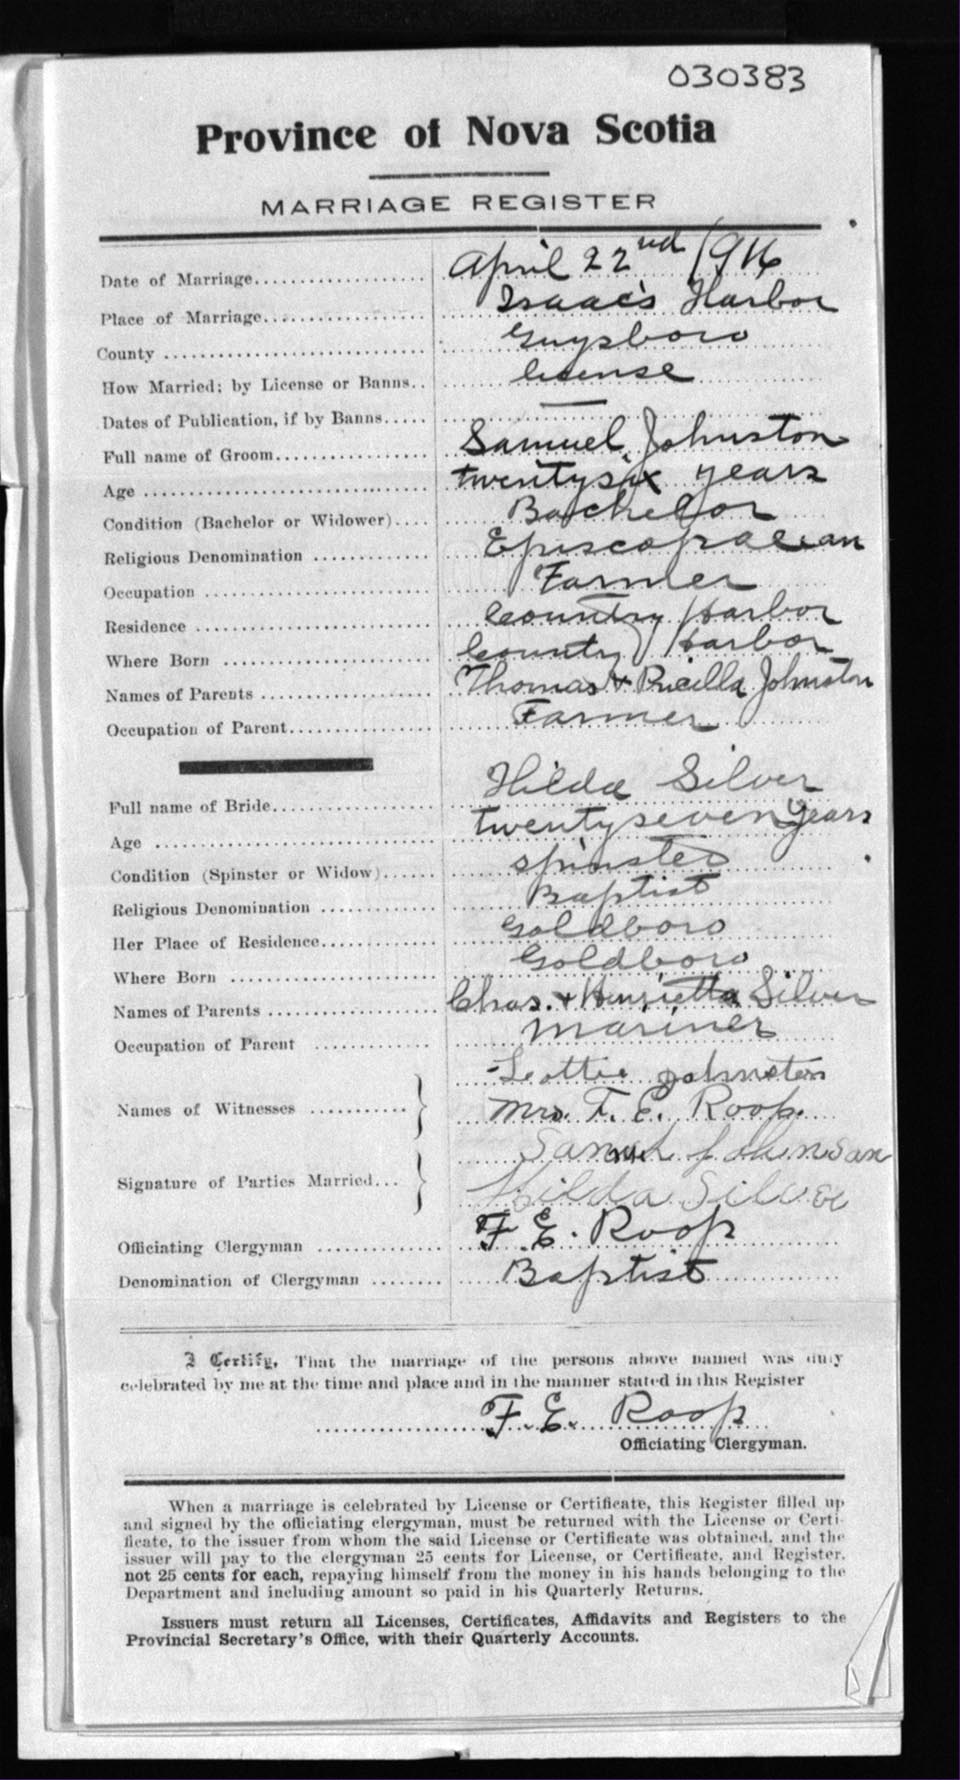 030383
Province of Nova Scotia
MARRIAGE REGISTER
Date of Marriage April 22nd 1916
Place of Marriage Isaac's Harbor
County Guysboro
How Married; by License or Banns license
Dates of Publication, if by Banns —
Full name of Groom Samuel Johnston
Age twentysix years
Condition (Bachelor or Widower) Bachelor
Religious Denomination Episcopalean
Occupation Farmer
Residence Country Harbor
Where Born Country Harbor
Names of Parents Thomas & Pricilla Johnston
Occupation of Parent Farmer
Full name of Bride Hilda Silver
Age twentyseven years
Condition (Spinster or Widow) spinster
Religious Denomination Baptist
Her Place of Residence Goldboro
Where Born Goldboro
Names of Parents Chas. & Henrietta Silver
Occupation of Parent Mariner
Names of Witnesses Lottie Johnston
Mrs. F. E. Roop
Signature of Parties Married Johnson
Hilda Silver
Officiating Clergyman F. E. Roop
Denomination of Clergyman Baptist
I Certify, That the marriage of the persons above named was duly
celebrated by me at the time and place and in the manner stated in this Register
F. E. Roop
Officiating Clergyman.
When a marriage is celebrated by License or Certificate, this Register filled up
and signed by the officiating clergyman, must be returned with the License or Certi-
ficate, to the issuer from whom the said License or Certificate was obtained, and the
issuer will pay to the clergyman 25 cents for License, or Certificate, and Register,
not 25 cents for each, repaying himself from the money in his hands belonging to the
Department and including amount so paid in his Quarterly Returns.
Issuers must return all Licenses, Certificates, Affidavits and Registers to the
Provincial Secretary's Office, with their Quarterly Accounts.